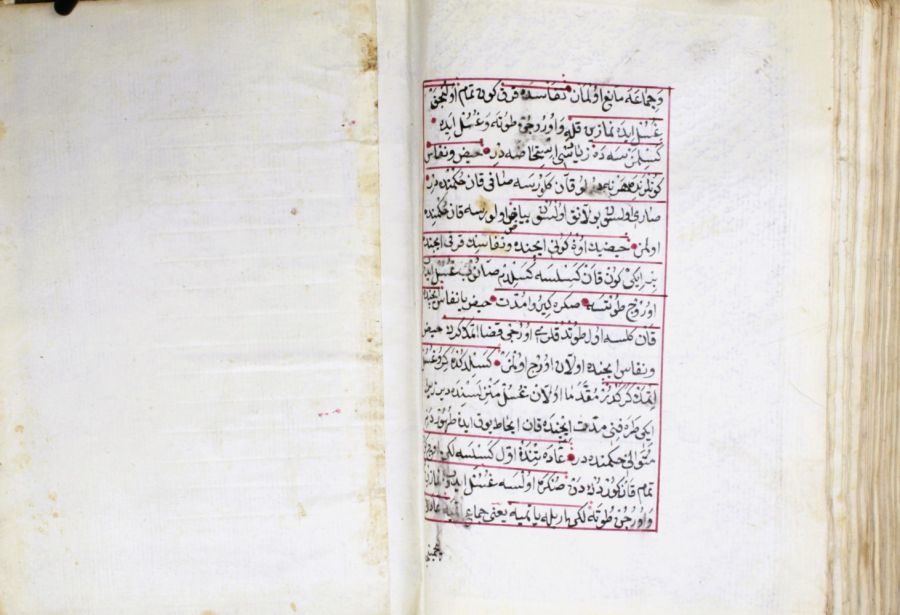 وجماعه مانع اولماز نفاسده قرق كون تمام اولنجق
غسل ايده نمازين قله و اوروجى طوته و غسل ايده
كسلمزسه دن زياسى استحاضه در حيض و نفاس
كونلرنده هر نه لو قان كلورسه صافى قان حكمنده در
صارى اولسون بولانق اولسون بياض اولورسه قان حكمنده
اولمز حيضيك اون كونى ايچنده و نفاسك قرقى ايچنده
بر ايكى كون قان كسلسه كسلدم صانوب غسل ايدب
اوروج طوتسه صكره كيرو مدت حيض يا نفاس ايچنده
قان كلسه اول طوتدقلرى اوروجى قضا اتمك كرك حيض
و نفاس ايچنده اولان اوروج اولمز كسلدكده كرو غسل
اتمك كركدر مقدما اولان غسل منزلسنده دير زيرا
ايكى طرفنى مدت ايچنده قان احاطه ايده طهر دم
متوالى حكمنده در عادتندن اول كسلسه لكن اوچ
تمام قان كوردكدن صكره اولسه غسل ايدوب نمازن
و اوروجى طوته لكن اريله ياتميه يعنى جماع اتميه عاده